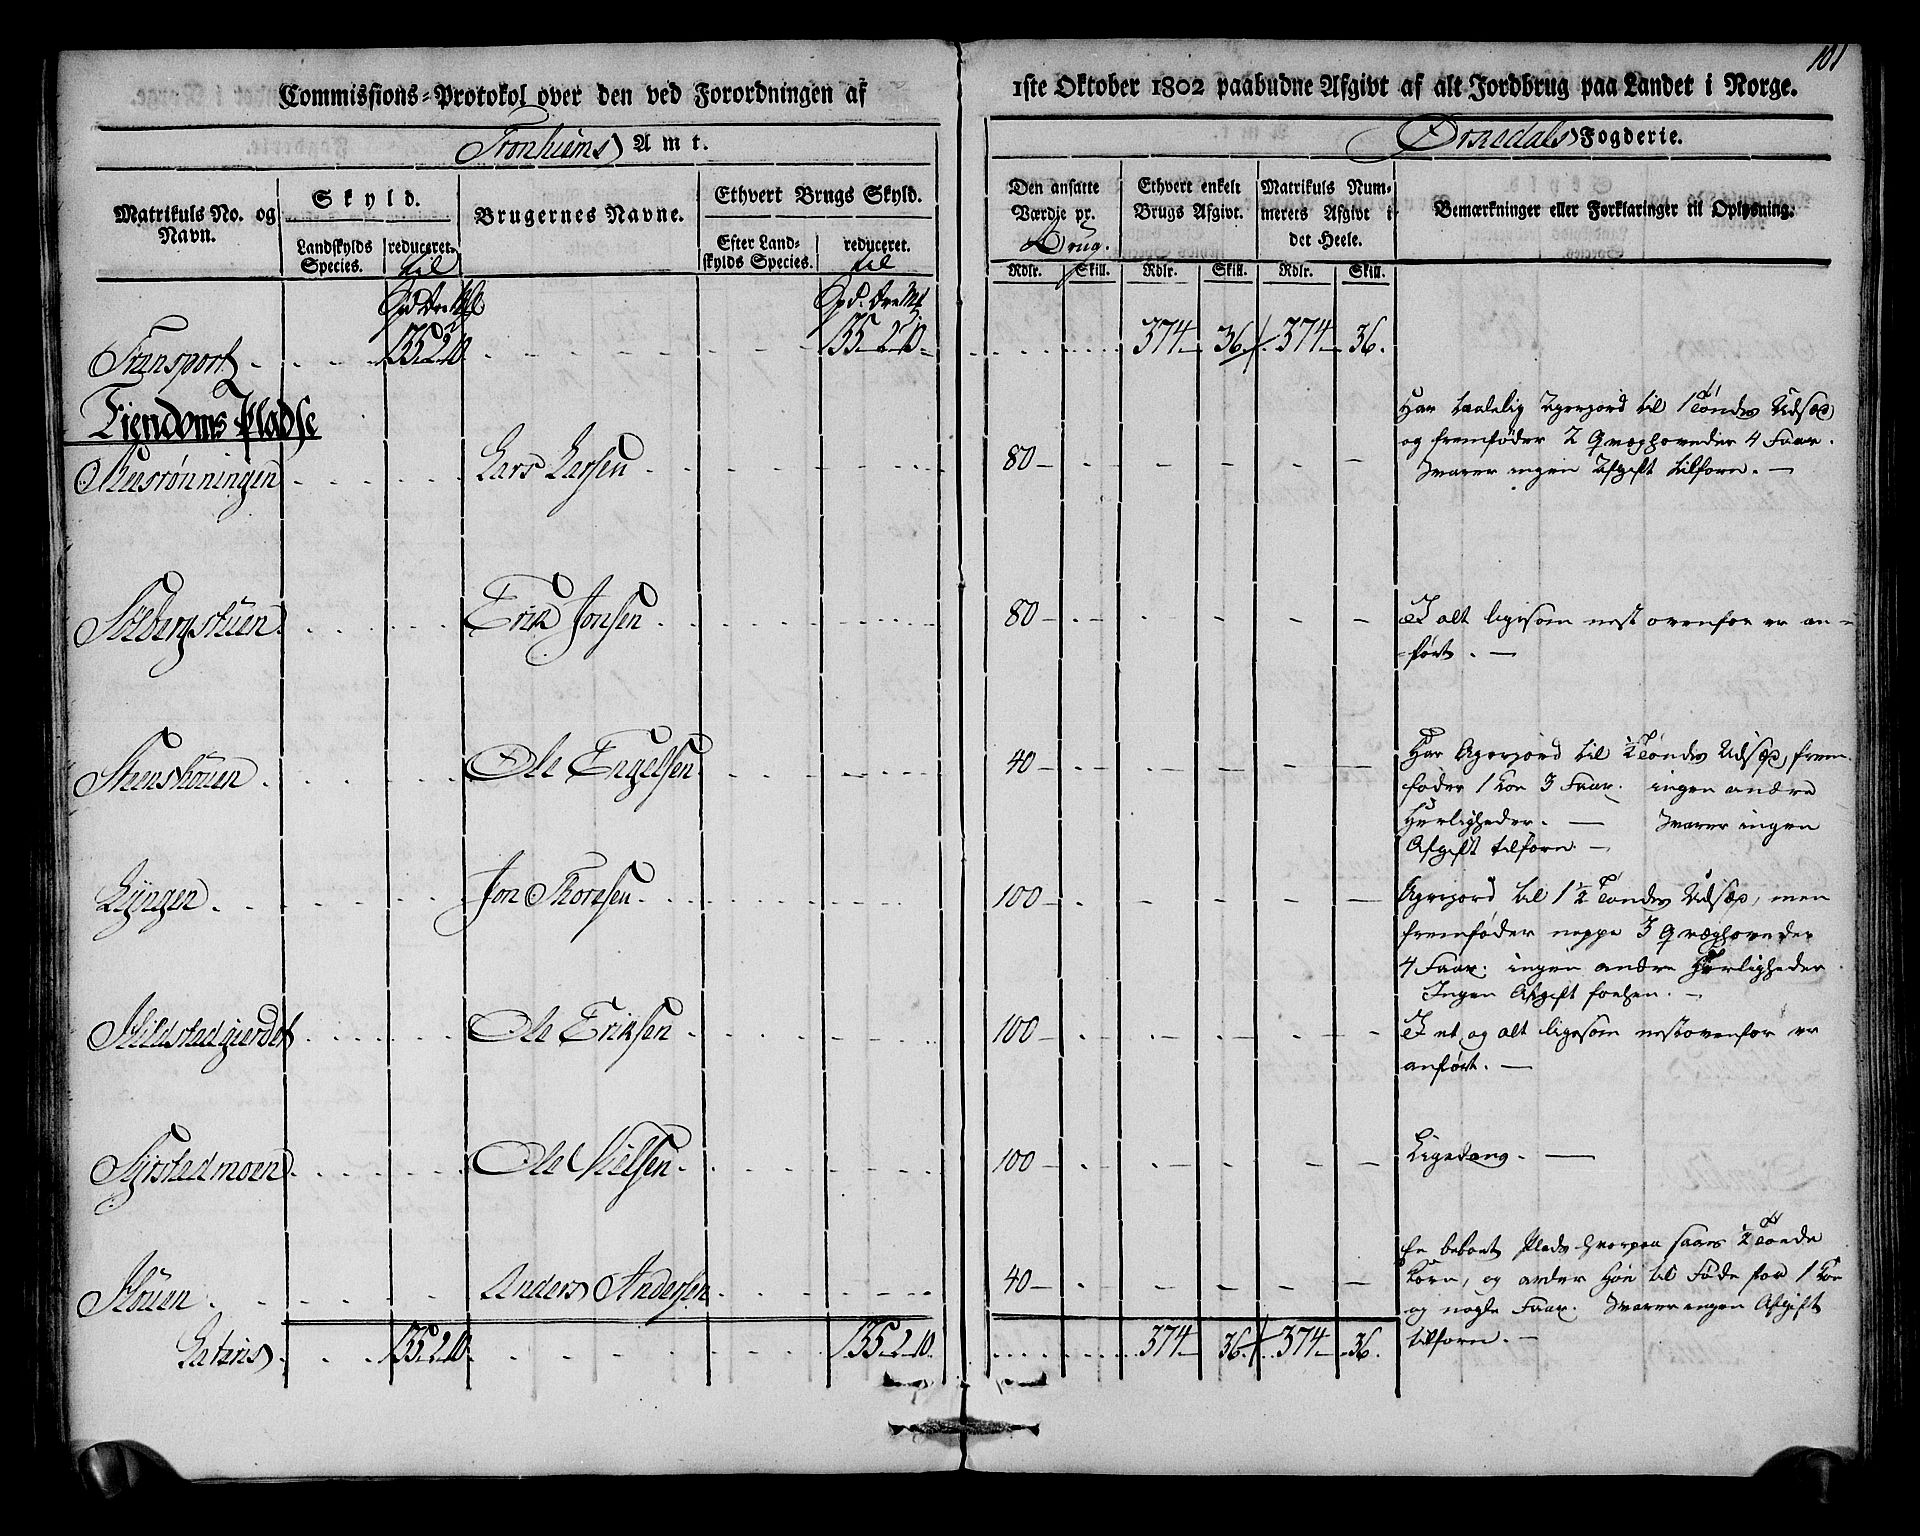 101
Commissions-Protokol over den ved Forordningen af 1ste Oktober 1802 paabudne Afgivt af alt Jordbrug paa Landet i Norge.
Tronhiems Amt. Fogderie.
Matrikuls No. og Navn. Skyld. Brugernes Navne. Ethvert Brugs Skyld. Den ansatte Værdje pr. Brug. Ethvert enkelt Brugs Afgivt. Matrikuls Nummerets Afgivt i det Heele. Bemærkninger eller Forklaringer til Oplysning.
Landskylds Species. reduceret til Efter Landskylds Species. reduceret til Rdlr. Skill. Rdlr. Skill. Rdlr. Skill.
Transport 135 2 10 135 2 10 374 36 374 36
Eiendoms Pladse
Lars Larsen 80 Har taalelig Agerjord til 1 Tøndes Udsæd
og fremføder 2 Qvæghoveder 4 Faar.
Svarer ingen Afgift tilforn.
Solbergstuen Erik Jonsen 80 I alt ligesom nest ovenfor er an-
ført.
Steenshouen Ole Engelsen 40 Har Agerjord til 1/2 Tøndes Udsæd, frem-
føder 1 Koe 3 Faar. ingen andre
Herligheder. Svarer ingen
Afgift tilforn.
Lynger Jon Thoresen 100 Agerjord til 1 1/2 Tøndes Udsæd, men
fremføder neppe 3 Qvæghoveder
4 Faar. ingen andre Herligheder.
Ingen Afgift forhen.
Ole Eriksen 100 I et og alt ligesom nestovenfor er
anført.
Ole Nielsen 100 Ligedang.
Houen Anders Andersen 40 En beboet Plads hvorpaa saaes 1/2 Tønde
Korn, og avler Høe til Føde for 1 Koe
og nogle Faar. Svarer ingen Afgift
tilforn.
Lateris 135 2 10 135 2 10 374 36 374 36